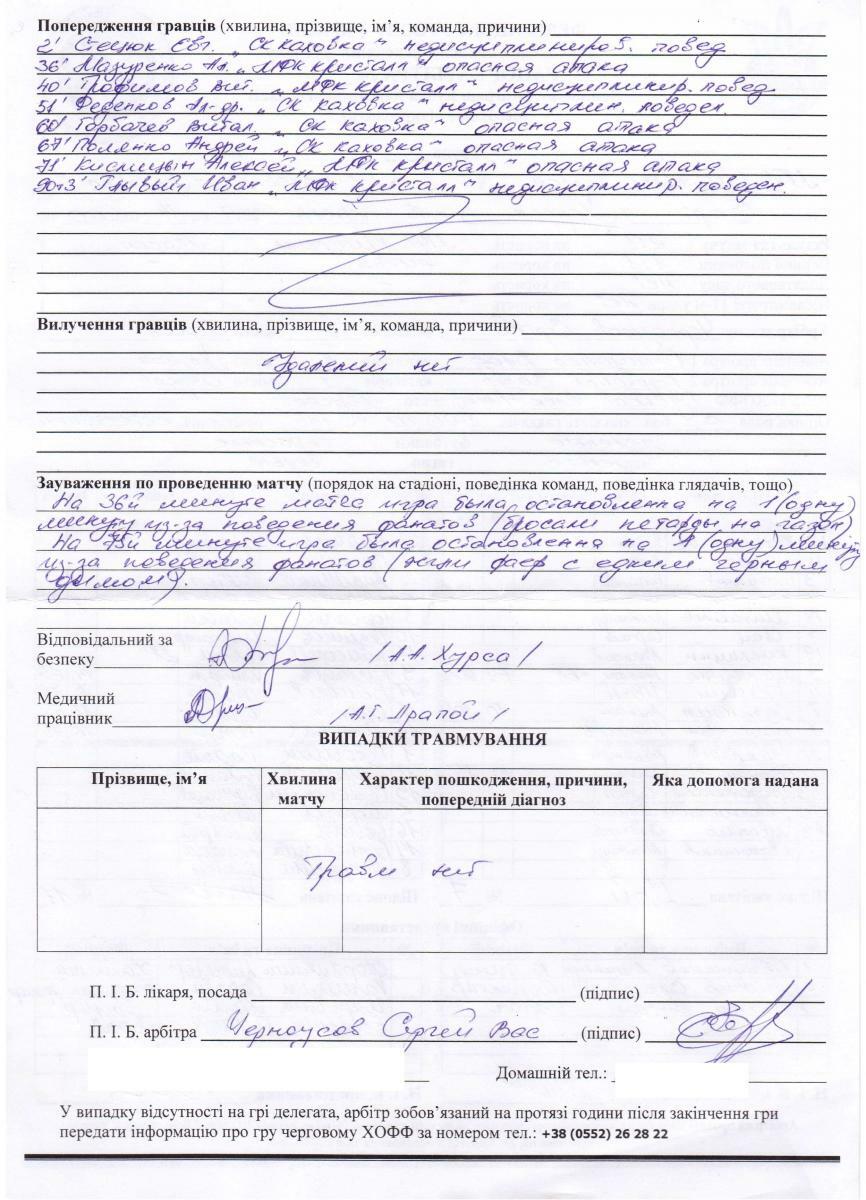 Попередження гравців (хвилина, прізвище, ім’я, команда, причини)
2' Стецюк Евг. „СК каховка" недисциплиниров. повед
36' Мазуренко Ал. „МФК кристалл" опасная атака
40' Трофимов Вит. „МФК кристалл" недисциплинир. повед.
51' Феденков Ал-др. „СК каховка" недисциплин. поведен.
60' Горбачев Витал. „СК каховка" опасная атака
67' Полянко Андрей „СК каховка" опасная атака
71' Кислицын Алексей „МФК кристалл" опасная атака
90+3' Глывый Иван „МФК кристалл" недисциплинир. поведен.
Вилучення гравців (хвилина, прізвище, ім’я, команда, причини)
Удалений нет
Зауваження по проведенню матчу (порядок на стадіоні, поведінка команд, поведінка глядачів, тощо)
На 36й минуте матча игра была остановленна на 1 (одну)
минуту из-за поведения фанатов (бросали петарды на газон)
На 75й минуте игра была остановленна на 1 (одну) минуту
из-за поведения фанатов (жгли фаер с едким черным
дымом).
Відповідальний за
безпеку /А.А. Хурса/
Медичний
працівник /А.Г. Арапой/
ВИПАДКИ ТРАВМУВАННЯ
Прізвище, ім’я Хвилина матчу Характер пошкодження, причини, попередній діагноз Яка допомога надана
Травм нет
П. І. Б. лікаря, посада (підпис)
П. І. Б. арбітра Черноусов Сергей Вас (підпис)
Домашній тел.:
У випадку відсутності на грі делегата, арбітр зобов’язаний на протязі години після закінчення гри
передати інформацію про гру черговому ХОФФ за номером тел.: +38 (0552) 26 28 22